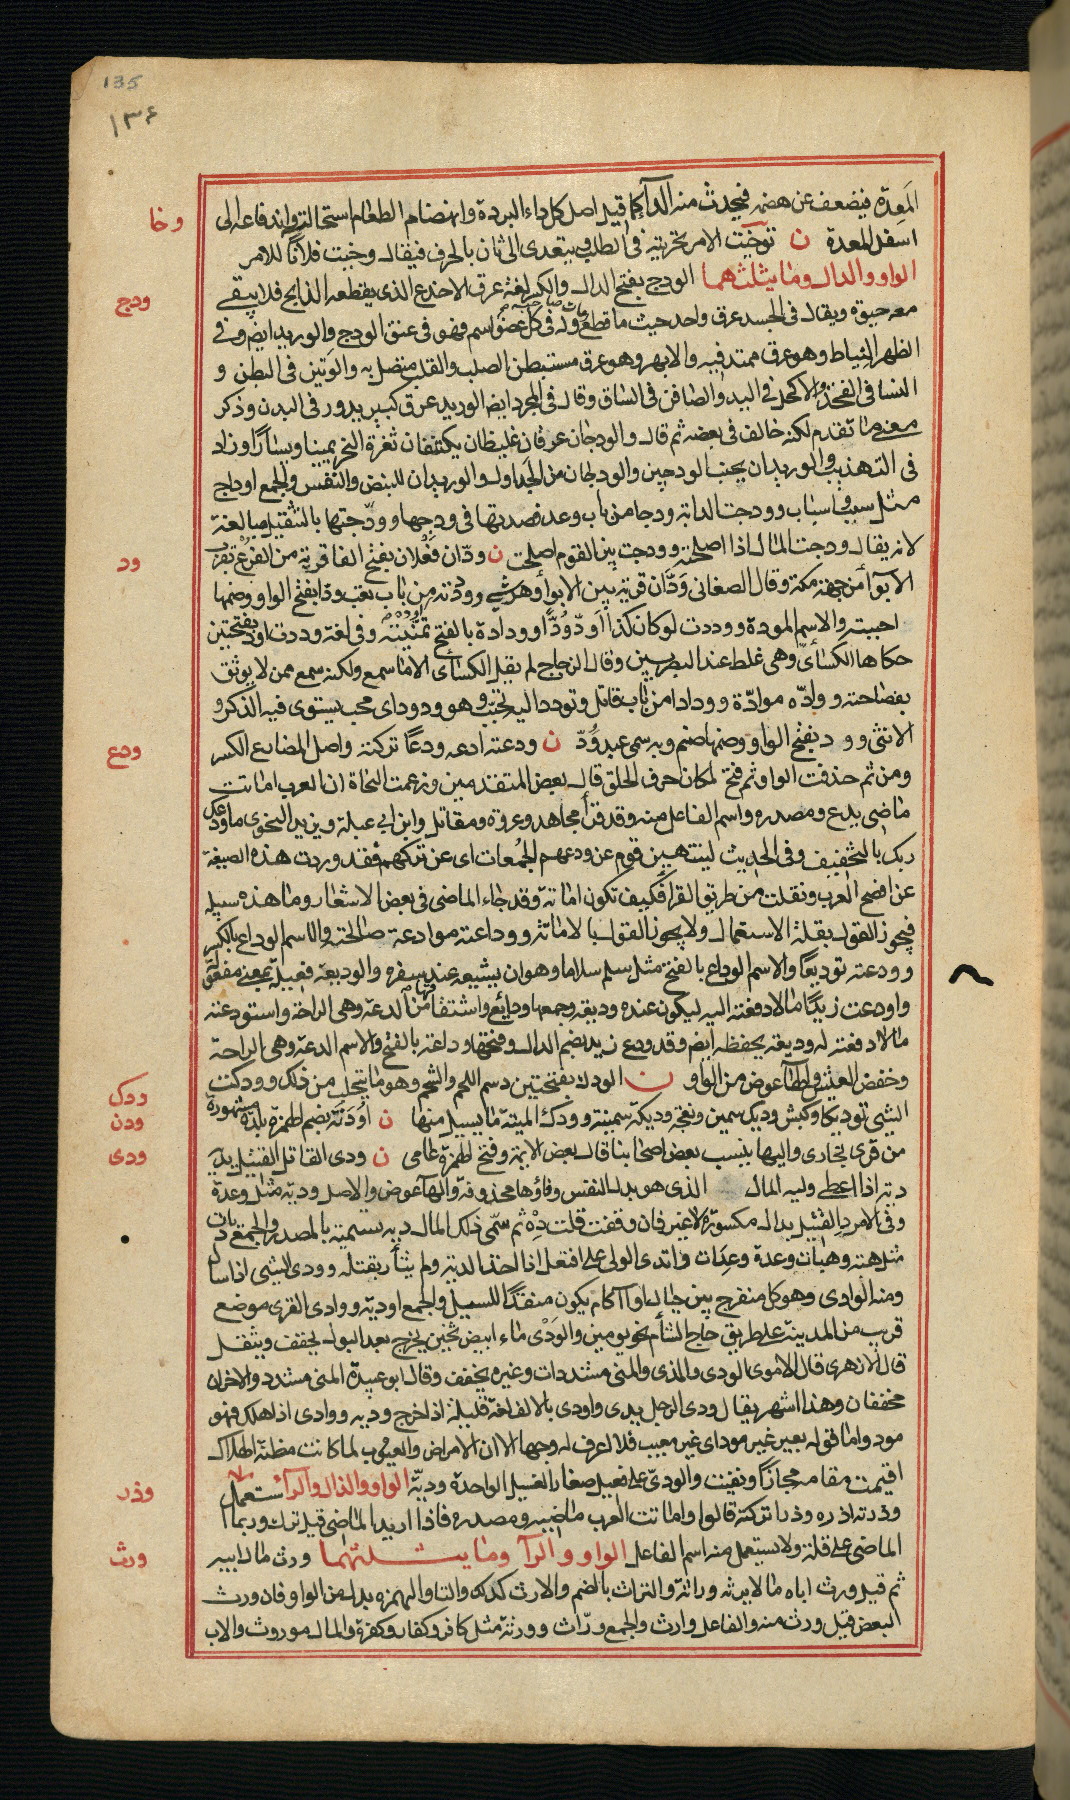 135
١٣٤
المعدة فيضعف عن هضمه فيحدث منه الداء كما قيل اصل كل داء البردة وانهضام الطعام استحالته واندفاعه الى
وخا
اسفل المعدة ن توخيت الامر تحريته في الطلب ويتعدى الى ثان بالحرف فيقال وخيت فلانا للامر
الواو والدال وما يثلثهما الودج بفتح الدال والكسر لغة عرق الاخدع الذي يقطعه الذابح فلا يبقى
ودج
معه حيوة ويقال في الجسد عرق واحد حيث ما قطع مات صاحبه وله في كل عضو اسم فهو في عنق الودج والوريد ايضا وفي
الظهر النياط وهو عرق ممتد فيه والابهر وهو عرق مستبطن الصلب والقلب متصل به والوتين في البطن و
النسا في الفخذ والاكحل في اليد والصافن في الساق وقال في المجرد ايضا الوريد عرق كبير يدور في البدن وذكر
معنى ما تقدم لكنه خالف في بعضه ثم قال والودجان عرقان غليظان يكتنفان ثغرة النحر يمينا ويسارا وزاد
في التهذيب والوريدان بجنب الودجين والودجان من الجداول والوريدان للنبض والنفس والجمع اوداج
مثل سبب واسباب وودجت الدابة ودجا من باب وعد فصدتها في ودجها وودجتها بالتثقيل مبالغة
لانه يقال ودجت المال اذا اصلحته وودجت بين القوم اصلحت ن ودان فعلان بفتح الفا قرية من الفرع تقرب
ود
الابوآ من جهة مكة وقال الصغاني ودان قرية بين الابوا وهرشى ووددته من باب تعب ودا بفتح الواو وضمها
احببته والاسم المودة ووددت لو كان كذا اود ودا وودادة بالفتح تمنيته وفي لغة وددت اود بفتحتين
حكاها الكسائي وهي غلط عند البصريين وقال الزجاج لم يقل الكسائي الا ما سمع ولكنه سمع ممن لا يوثق
بفصاحته ووادّه موادّة وودادا من باب قاتل وتودد اليه تحبب وهو ودود اي محب يستوي فيه الذكر و
الانثى وود بفتح الواو وضمها صنم وبه سمي عبد ودّ ن ودعته ادعه ودعا تركته واصل المضارع الكسر
ودع
ومن ثم حذفت الواو ثم فتح لمكان حرف الحلق قال بعض المتقدمين وزعمت النحاة ان العرب اماتت
ماضي يدع ومصدره واسم الفاعل منه وقد قرأ مجاهد وعروة ومقاتل وابن ابي عبلة ويزيد النحوي ما ودعك
ربك بالتخفيف وفي الحديث لينتهين قوم عن ودعهم الجمعات اي عن تركهم فقد وردت هذه الصيغة
عن افصح العرب ونقلت من طريق القرا فكيف تكون اماتة وقد جاء الماضي في بعض الاشعار وما هذه سبيله
فيجوز القول بقلة الاستعمال ولا يجوز القول بالاماتة ووادعته موادعة صالحته والاسم الوداع بالكسر
وودعته توديعا والاسم الوداع بالفتح مثل سلم سلاما وهو ان يشيعه عند سفره والوديعة فعيلة بمعنى مفعولة
واودعت زيدا مالا دفعته اليه ليكون عنده وديعة وجمعها ودايع واشتقاقها من الدعة وهي الراحة واستودعته
مالا دفعته له وديعة يحفظه ايضا وقد ودع زيد بضم الدال وفتحها وداعة بالفتح والاسم الدعة وهي الراحة
وخفض العيش والهآ عوض من الواو ن الودك بفتحتين دسم اللحم والشحم وهو ما يتحلب من ذلك وودكت
ودك
الشيء توديكا وكبش وديك سمين ونعجة وديكة سمينة وودك الميتة ما يسيل منها ن اودنة بضم الهمزة بلدة مشهورة
ودن
من قرى بخارى واليها ينسب بعض اصحابنا قال بعض الايمة وفتح الهمزة عامي ن ودى القاتل القتيل يديه
ودى
دية اذا اعطى وليه المال الذي هو بدل النفس وفاؤها محذوفة والهآ عوض والاصل ودية مثل وعدة
وفي الامر د القتيل بدال مكسورة لا غير فان وقفت قلت ده ثم سمي ذلك المال دية تسمية بالمصدر والجمع ديات
مثل هبة وهبات وعدة وعدات واتدى الولي على افتعل اذا اخذ الدية ولم يثأر بقتله وودى الشيء اذا سال
ومنه الوادي وهو كل منفرج بين جبال او آكام يكون منفذا للسيل والجمع اودية ووادي القرى موضع
قرب من المدينة على طريق حاج الشأم نحو يومين والودي ماء ابيض ثخين يخرج بعد البول يخفف ويثقل
قال الازهري قال الاموي الودي والمذي والمني مشددات وغيره يخفف وقال ابو عبيدة المني مشدد والاخران
مخففان وهذا اشهر يقال ودى الرجل يدى واودى بالالف لغة قليلة اذا خرج وديه وودى اذا هلك فهو
مود واما قوله بعير غير مود اي غير معيب فلا اعرف له وجها الا ان الامراض والعيوب لما كانت مظنة الهلاك
اقيمت مقامه مجازا ونفيت والودي على فعيل صغار الفسيل الواحدة ودية الواو والذال والرآ يستعمل
وذر
وذرته اذره وذرا تركته قالوا واماتت العرب ماضيه ومصدره فاذا اريد الماضي قيل ترك وربما
الماضي على قلة ولا يستعمل منه اسم الفاعل الواو والرآ وما يثلثهما ورث مال ابيه
ورث
ثم قيل ورث اباه مالا يرثه وراثة والتراث بالضم والارث كذلك والتا والهمزة بدل من الواو فان ورث
البعض قيل ورث منه والفاعل وارث والجمع وراث وورثة مثل كافر وكفار وكفرة والمال موروث والاب